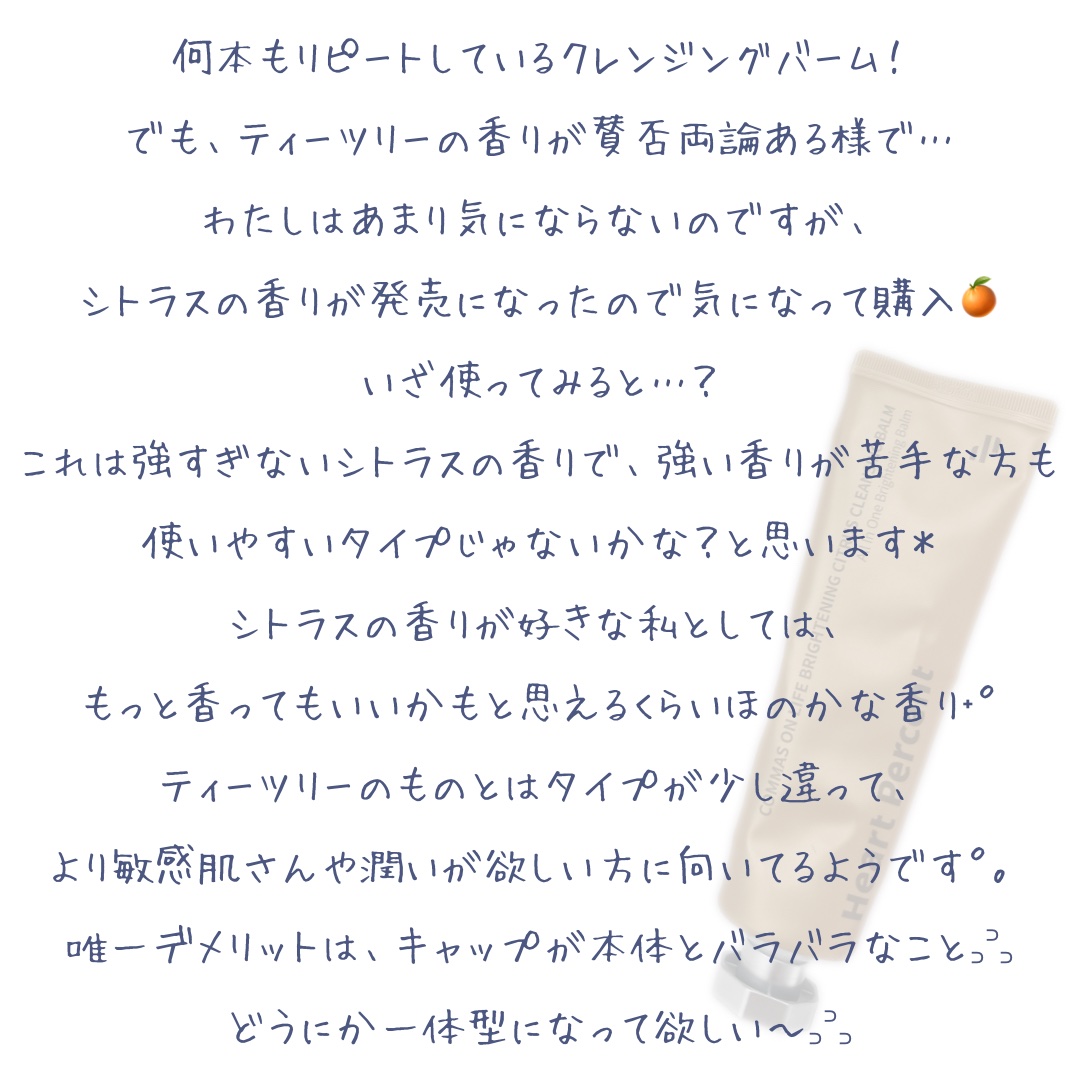 何本もリピートしているクレンジングバーム！
でも、ティーツリーの香りが賛否両論ある様で…
わたしはあまり気にならないのですが、
シトラスの香りが発売になったので気になって購入🍊
いざ使ってみると…？
これは強すぎないシトラスの香りで、強い香りが苦手な方も
使いやすいタイプじゃないかな？と思います*
シトラスの香りが好きな私としては、
もっと香ってもいいかもと思えるくらいほのかな香り˖°
ティーツリーのものとはタイプが少し違って、
より敏感肌さんや潤いが欲しい方に向いてるようです°。
唯一デメリットは、キャップが本体とバラバラなこと੭ ੭
どうにか一体型になって欲しい〜੭ ੭
COMMAS ON LIFE BRIGHTENING CITRUS CLEANSING BALM
All In One Brightening Balm
Heart Percent